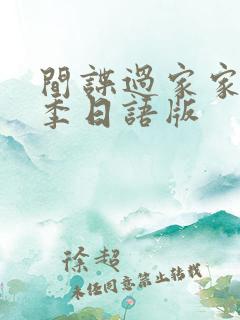 間諜過家家
季日語版
徐超
未经同意禁止转载